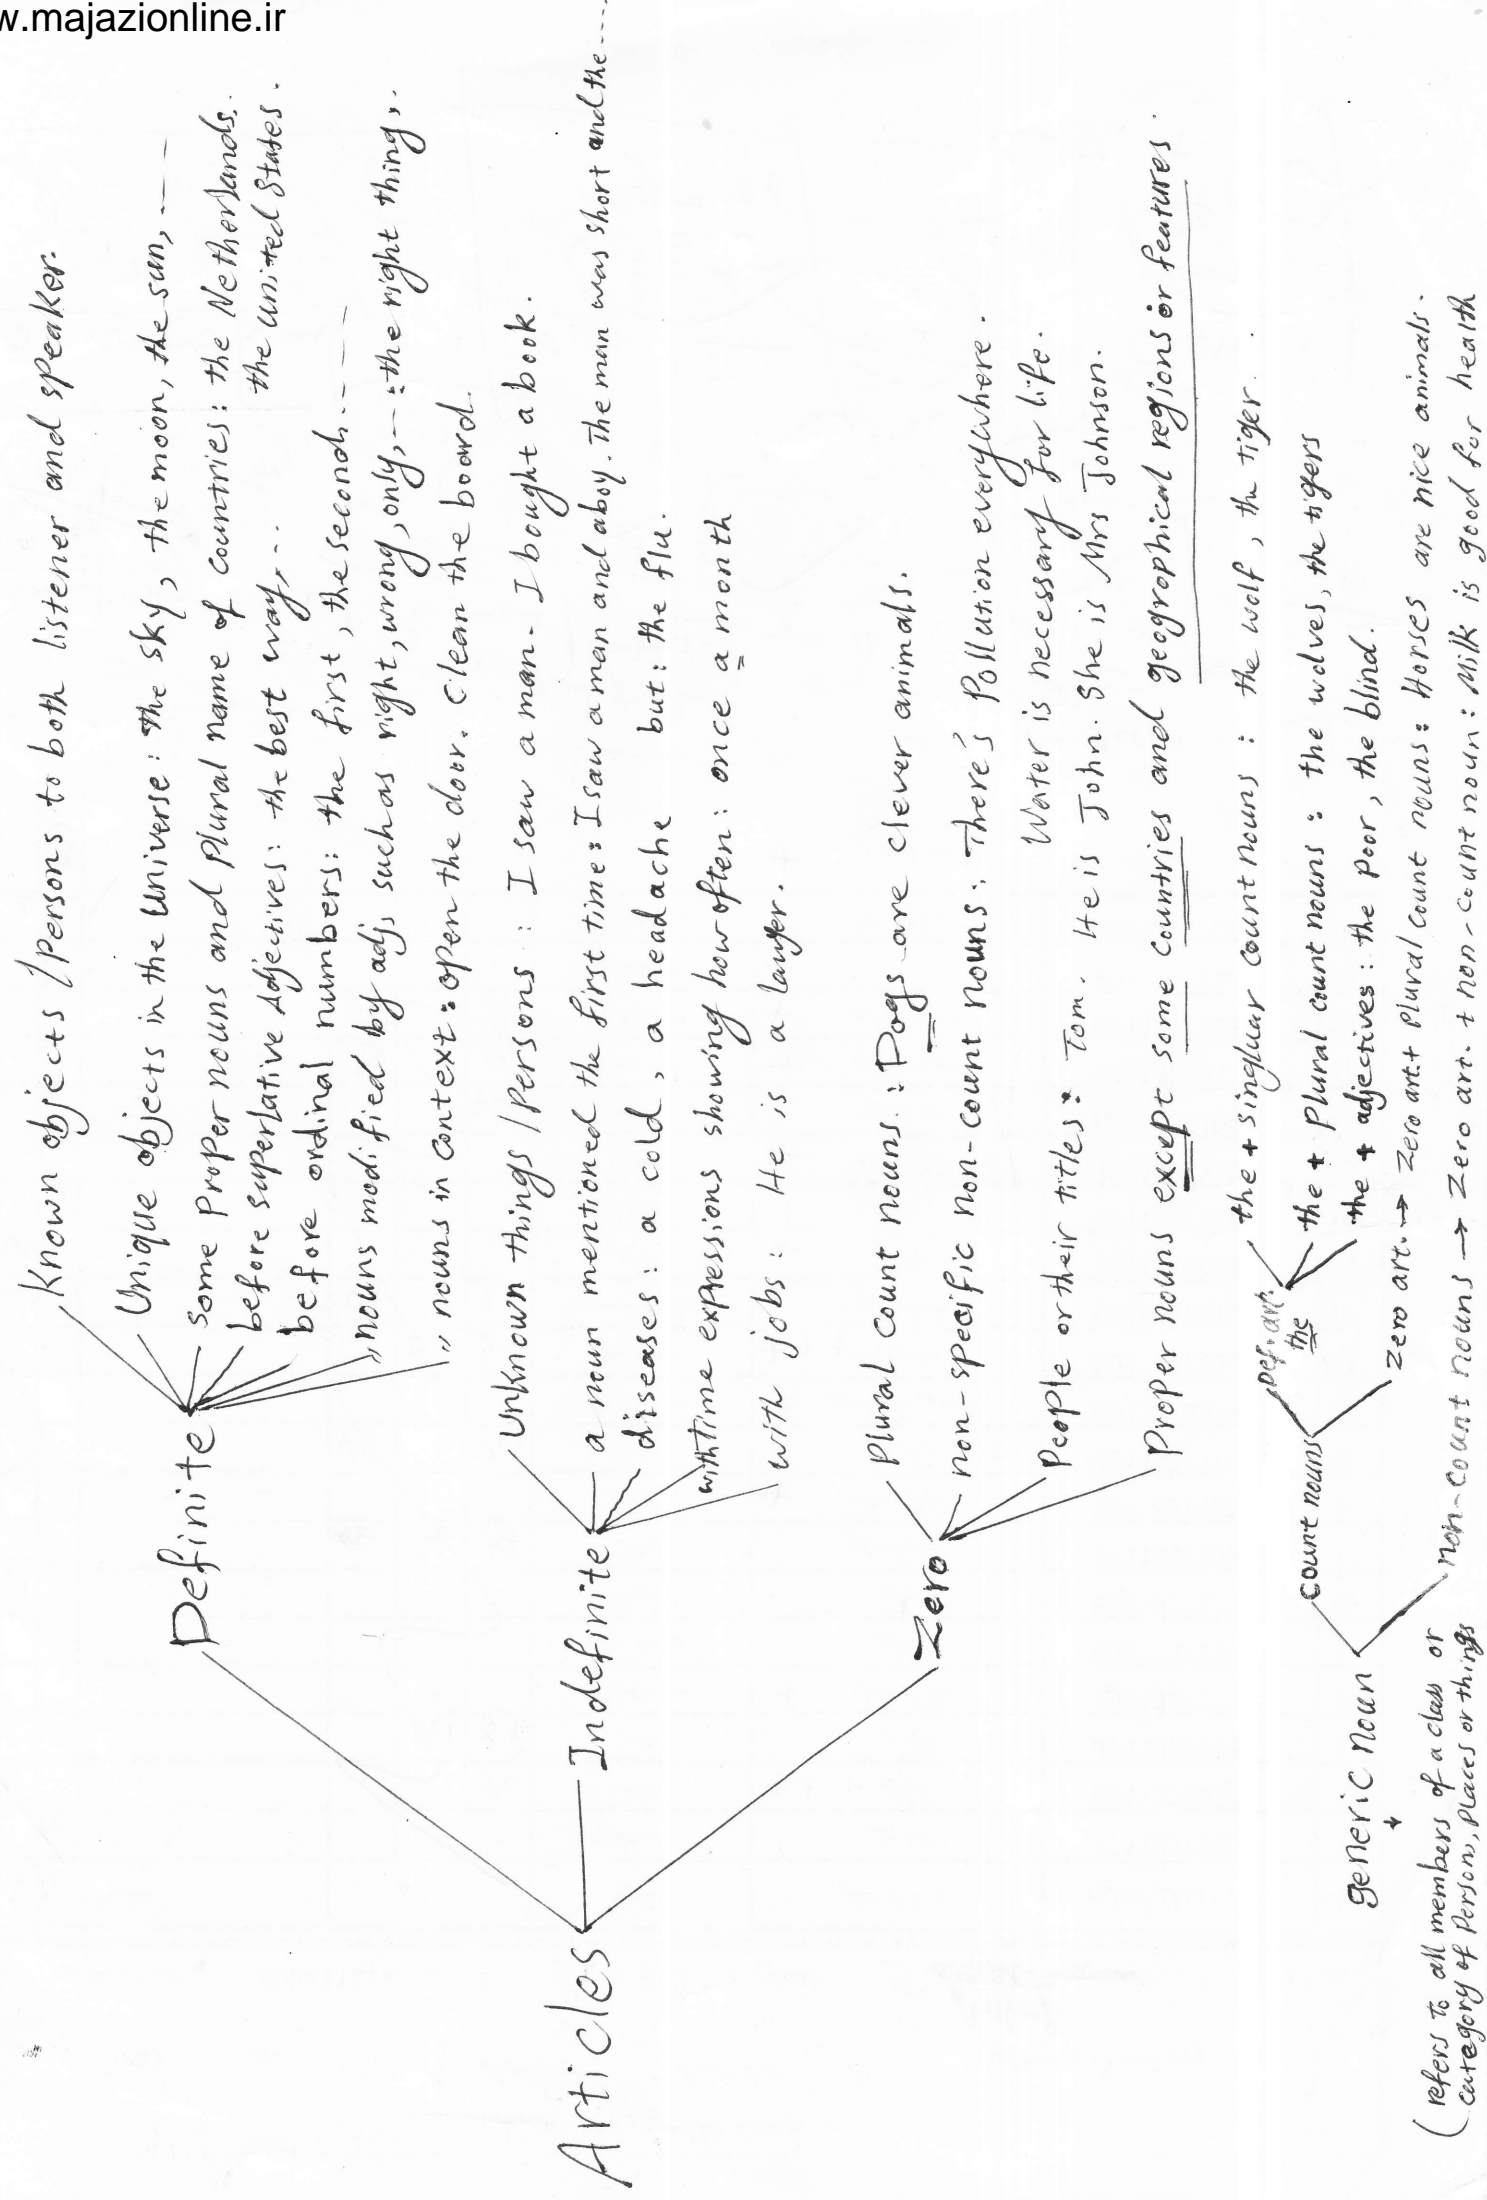 w.majazionline.ir
Known objects / Persons to both listener and speaker.
Unique objects in the universe: the sky, the moon, the sun, ---
Some Proper nouns and Plural name of countries: the Netherlands.
the united States.
before superlative Adjectives: the best way, ..
before ordinal numbers: the first, the second. ----
,, nouns modified by adj, such as right, wrong, only, --: the right thing, ..
,, nouns in context: open the door. Clean the board.
Definite
Unknown things / Persons : I saw a man. I bought a book.
a noun mentioned the first time: I saw a man and a boy. The man was short and the ----
diseases: a cold, a headache but: the flu.
with time expressions showing how often: once a month
with jobs: He is a lawyer.
Indefinite
Articles
Plural count nouns : Dogs are clever animals.
non-specific non-count nouns: There's Pollution everywhere.
Water is necessary for life.
People or their titles: Tom. He is John. She is Mrs Johnson.
Proper nouns except some countries and geogrophical regions or features.
Zero
the + singluar count nouns : the wolf, the tiger.
the + Plural count nouns : the wolves, the tigers
the + adjectives: the poor, the blind.
Def. art.
the
Zero art. → Zero art.+ Plural count nouns: Horses are nice animals.
count nouns
non-count nouns → Zero art. + non-count noun: Milk is good for health
generic noun
(refers to all members of a class or
category of Person, Places or things